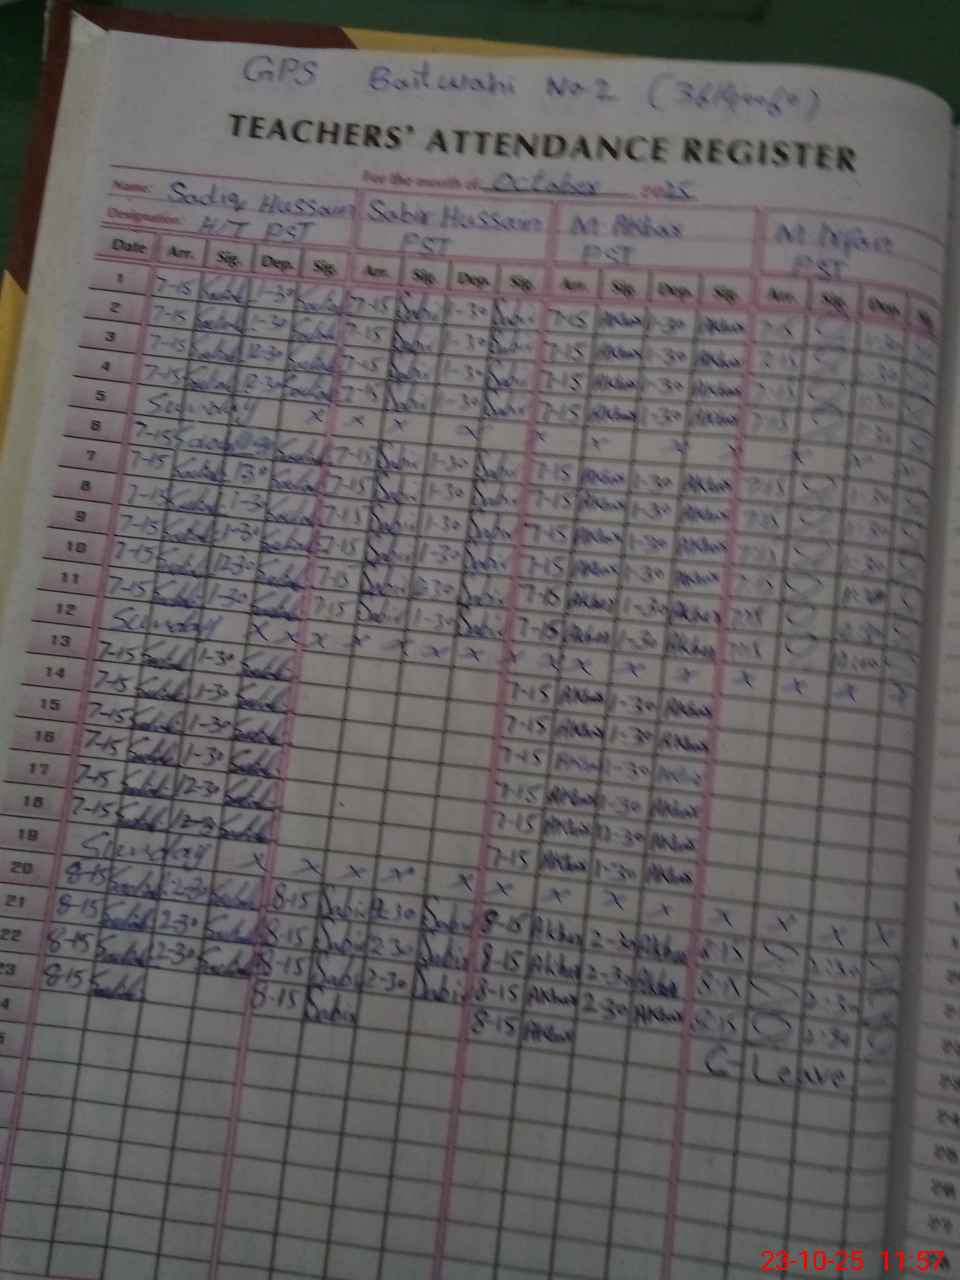 GPS Baitwahi No-2
TEACHERS' ATTENDANCE REGISTER
For the month of October 2025
Name: Sadiq Hussain Sabir Hussain M. Akbar M.
Designation: H/T PST PST PST PST
Date Arr. Sig. Dep. Sig. Arr. Sig. Dep. Sig. Arr. Sig. Dep. Sig. Arr. Sig. Dep. Sig.
1 7-15 Sadiq 1-30 Sadiq 7-15 Sabir 1-30 Sabir 7-15 Akbar 1-30 Akbar 7-15 1-30
2 7-15 Sadiq 1-30 Sadiq 7-15 Sabir 1-30 Sabir 7-15 Akbar 1-30 Akbar 7-15 1-30
3 7-15 Sadiq 12-30 Sadiq 7-15 Sabir 1-30 Sabir 7-15 Akbar 1-30 Akbar 7-15 1-30
4 7-15 Sadiq 12-30 Sadiq 7-15 Sabir 1-30 Sabir 7-15 Akbar 1-30 Akbar 7-15 1-30
5 Sunday x x x x x x x x x x x
6 7-15 Sadiq Sadiq 7-15 Sabir 1-30 Sabir 7-15 Akbar 1-30 Akbar 7-15 1-30
7 7-15 Sadiq 130 Sadiq 7-15 Sabir 1-30 Sabir 7-15 Akbar 1-30 Akbar 7-15 1-30
8 7-15 Sadiq 1-30 Sadiq 7-15 Sabir 1-30 Sabir 7-15 Akbar 1-30 Akbar 7-15 1-30
9 7-15 Sadiq 1-30 Sadiq 7-15 Sabir 1-30 Sabir 7-15 Akbar 1-30 Akbar 7-15
10 7-15 Sadiq 12-30 Sadiq 7-15 Sabir 12-30 Sabir 7-15 Akbar 1-30 Akbar 7-15
11 7-15 Sadiq 1-30 Sadiq 7-15 Sabir 1-30 Sabir 7-15 Akbar 1-30 Akbar 7-15
12 Sunday x x x x x x x x x x x x x x x x
13 7-15 Sadiq 1-30 Sadiq 7-15 Akbar 1-30 Akbar
14 7-15 Sadiq 1-30 Sadiq 7-15 Akbar 1-30 Akbar
15 7-15 Sadiq 1-30 Sadiq 7-15 Akbar 1-30 Akbar
16 7-15 Sadiq 1-30 Sadiq 7-15 Akbar 1-30 Akbar
17 7-15 Sadiq 12-30 Sadiq 7-15 Akbar 12-30 Akbar
18 7-15 Sadiq 12-3 Sadiq 7-15 Akbar 1-30 Akbar
19 Sunday x x x x x x x x x x x x x
20 8-15 Sadiq 2-30 Sadiq 8-15 Sabir 2-30 Sabir 8-15 Akbar 2-30 Akbar 8-15 2-30
21 8-15 Sadiq 2-30 Sadiq 8-15 Sabir 2-30 Sabir 8-15 Akbar 2-30 Akbar 8-15 2-30
22 8-15 Sadiq 2-30 Sadiq 8-15 Sabir 2-30 Sabir 8-15 Akbar 2-30 Akbar 8-15 2-30
23 8-15 Sadiq 8-15 Sabir 8-15 Akbar C-Leave
23-10-25 11:57